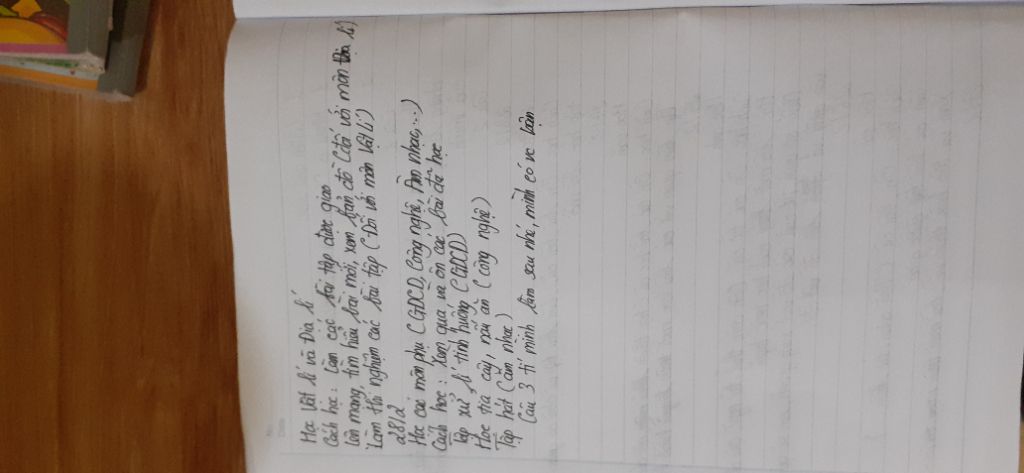 Học Vật lí và Địa lí
Cách học: Làm các bài tập được giao
Lên mạng, tìm hiểu bài mới, xem bản đồ (đối với môn Địa lí)
Làm thí nghiệm các bài tập (Đối với môn Vật lí)
28/2
Học các môn phụ (GDCD, Công nghệ, Âm nhạc,...)
Cách học: Xem qua và ôn các bài đã học
Tập xử lí tình huống (GDCD)
Học tỉa cây, nấu ăn (Công nghệ)
Tập hát (Âm nhạc)
Câu 3 tí mình làm sau nhé, mình có vc bận